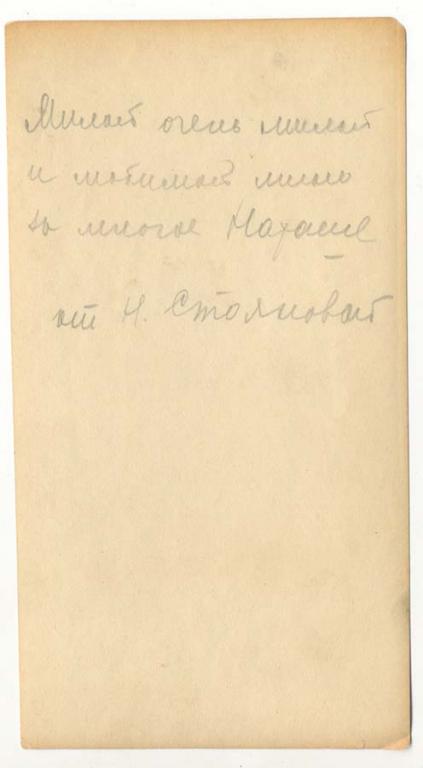 Милой очень милой
и любимой мною
за многое Наташе
от Н. Стояновой